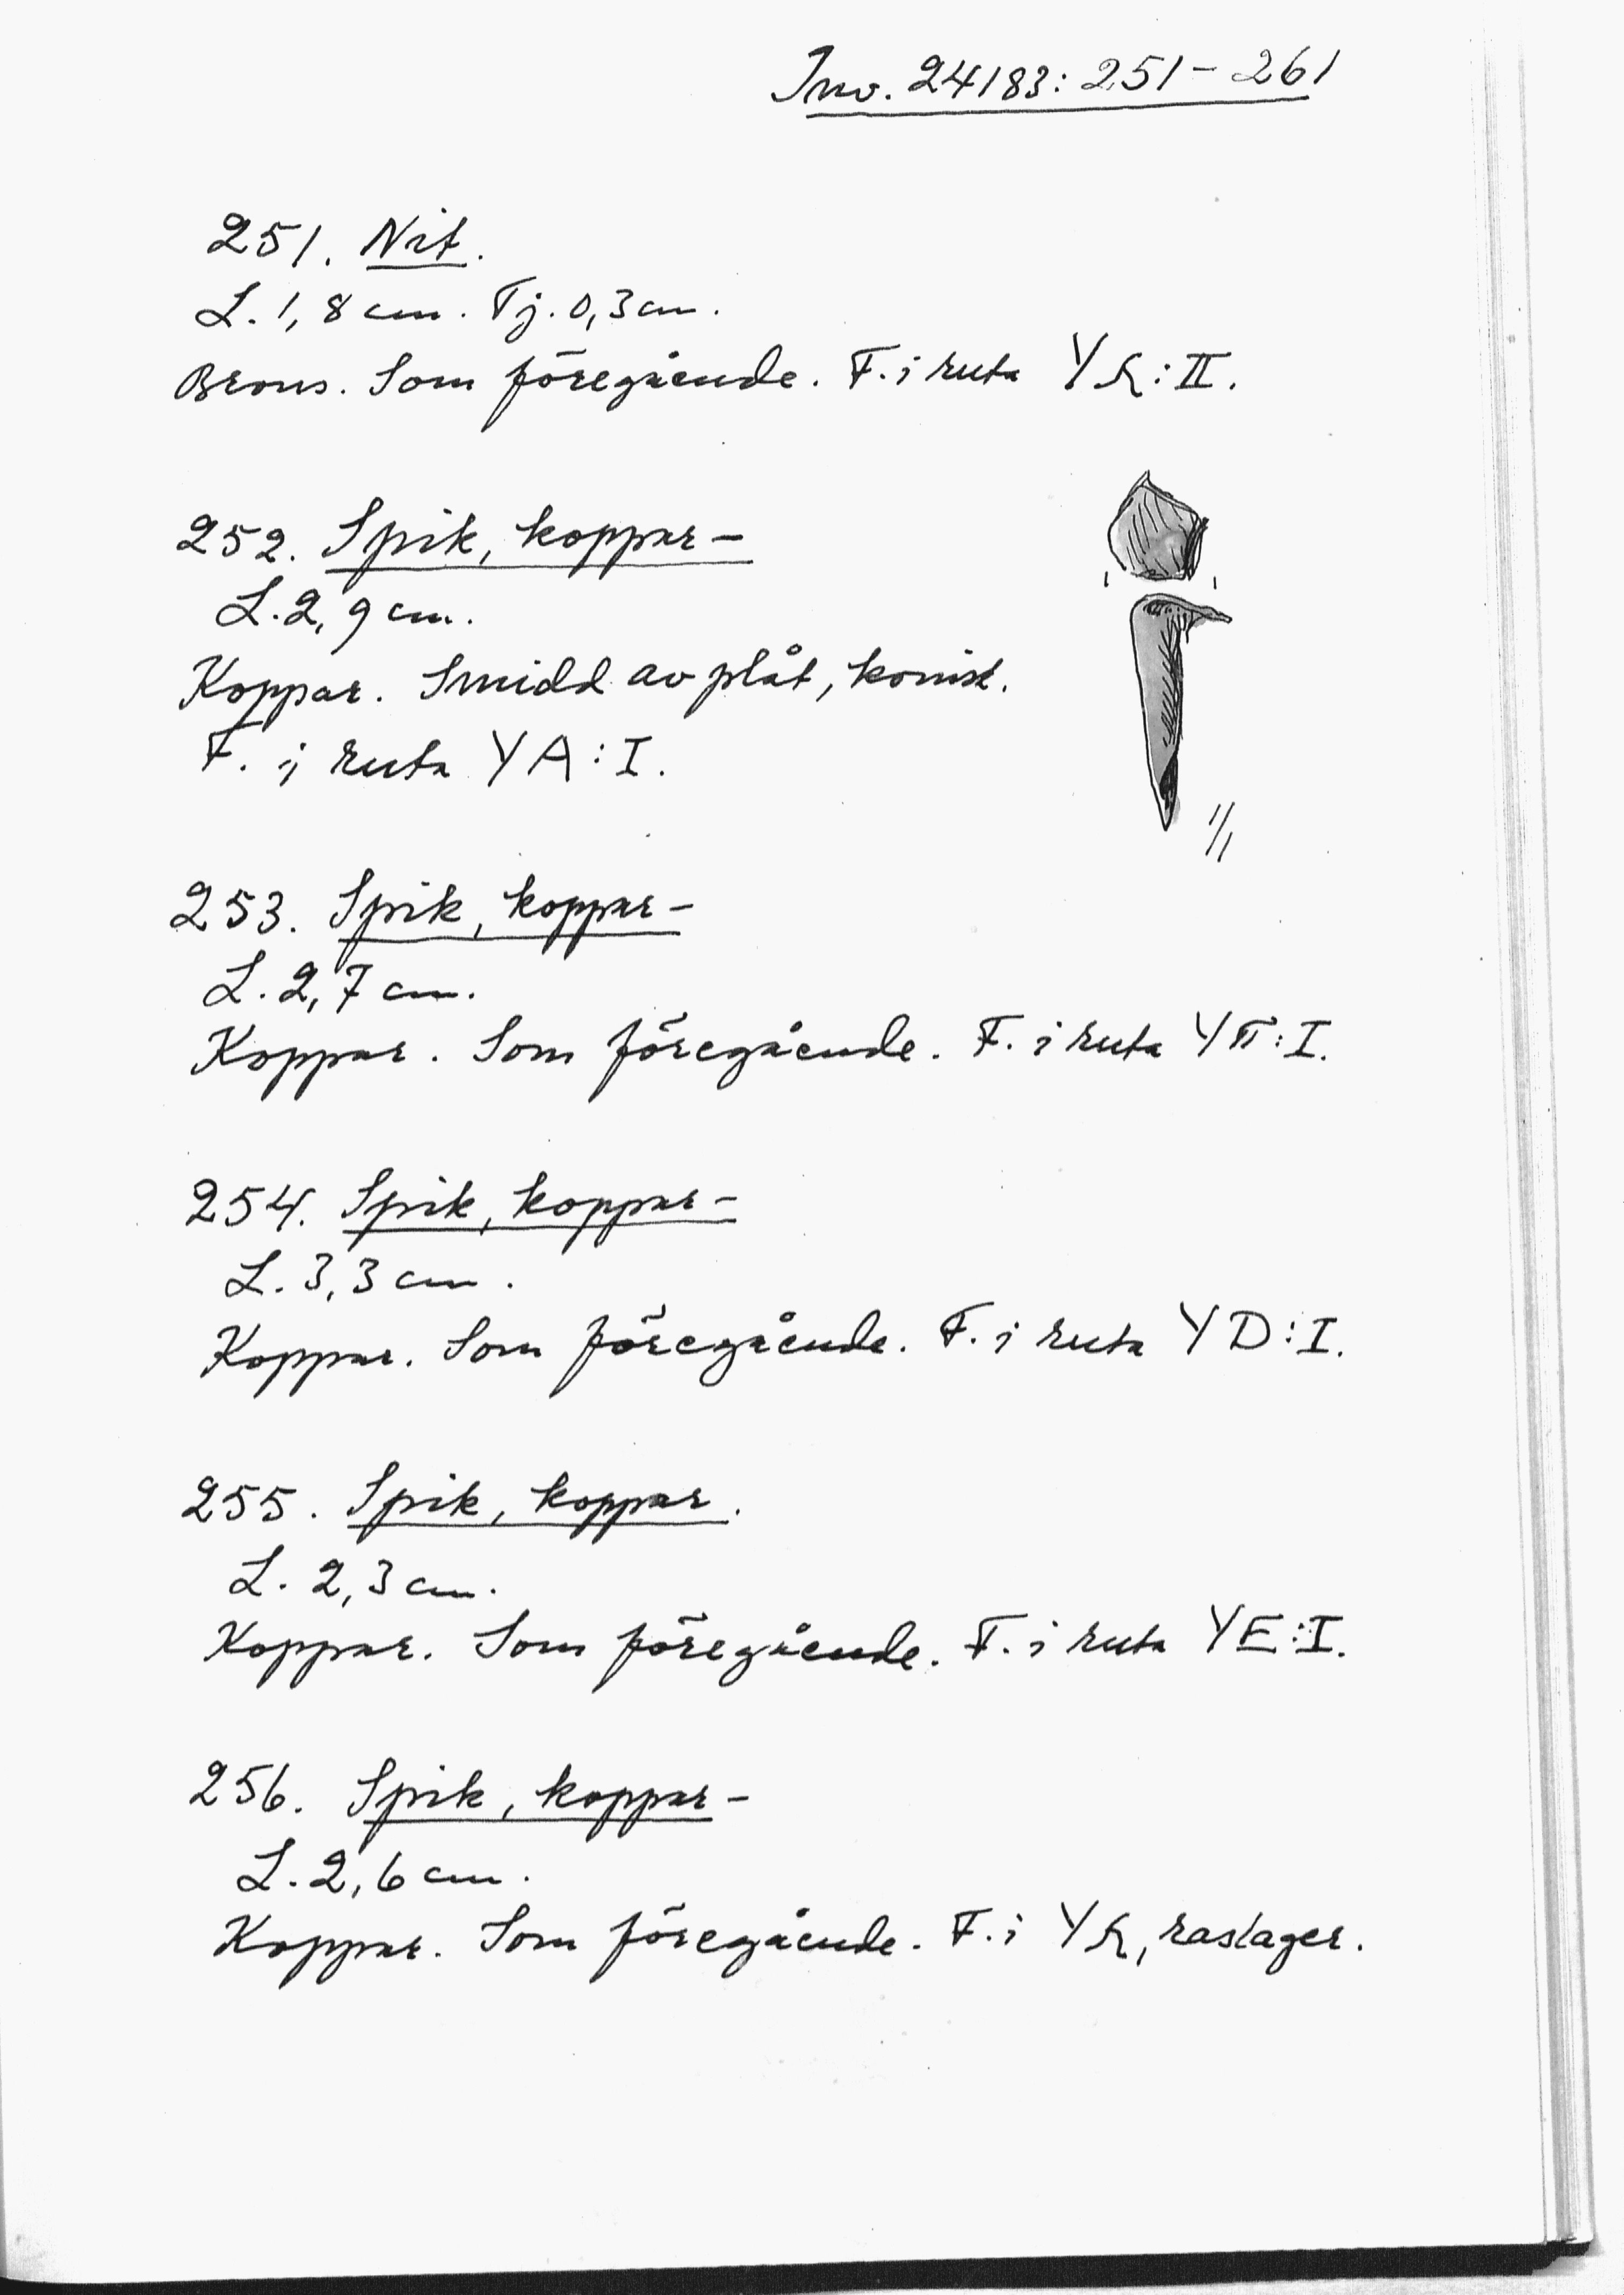 Inv. 24183: 251 - 261
251. Nit.
L. 1,8 cm. Tj. 0,3 cm.
Brons. Som föregående. F. i ruta Y :II.
252. Spik, koppar-
L. 2,9 cm.
Koppar. Smidd av plåt, konisk.
F. i ruta YA:I.
1/1
253. Spik, koppar-
L. 2,7 cm.
Koppar. Som föregående. F. i ruta Y :I.
254. Spik, koppar-
L. 3,3 cm.
Koppar. Som föregående. F. i ruta YD:I.
255. Spik, koppar.
L. 2,3 cm.
Koppar. Som föregående. F. i ruta YE:I.
256. Spik, koppar-
L. 2,6 cm.
Koppar. Som föregående. F. i Y , raslager.